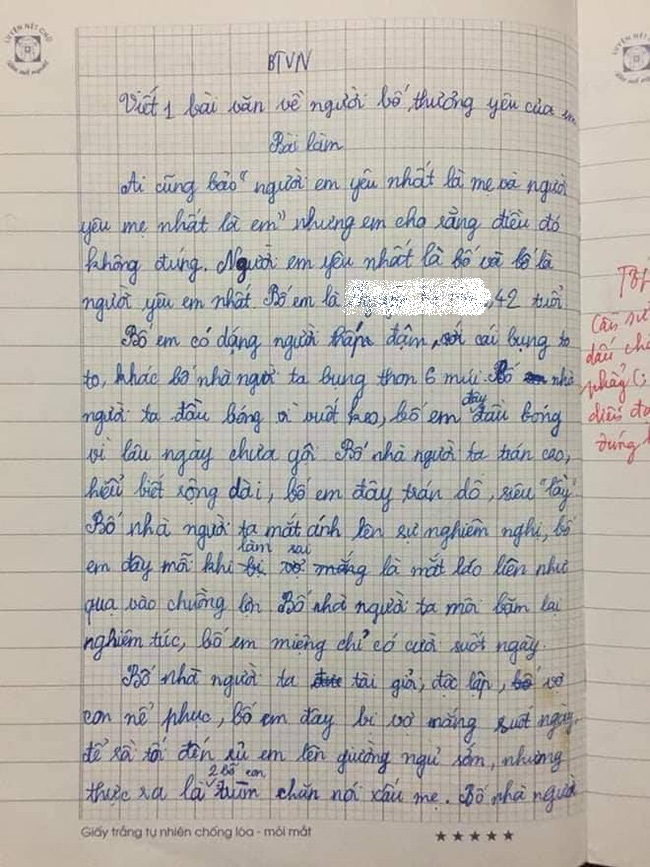 LUYỆN NÉT CHỮ
BTVN
Viết 1 bài văn về người bố thương yêu của em
Bài làm
Ai cũng bảo "người em yêu nhất là mẹ và người
yêu mẹ nhất là em" nhưng em cho rằng điều đó
không đúng. Người em yêu nhất là bố và bố là
người yêu em nhất. Bố em là , 42 tuổi
Bố em có dáng người thấp đậm, với cái bụng to
to, khác bố nhà người ta bụng thon 6 múi. Bố nhà
người ta đầu bóng vì vuốt keo, bố em đây đầu bóng
vì lâu ngày chưa gội. Bố nhà người ta trán cao,
hiểu biết rộng dài, bố em đây trán dô, siêu "lầy"
Bố nhà người ta mắt ánh lên sự nghiêm nghị, bố
em đây mỗi khi làm sai là mắt láo liên như
qua vào chuồng lợn Bố nhà người ta môi bặm lại
nghiêm túc, bố em miệng chỉ có cười suốt ngày.
Bố nhà người ta tài giỏi, độc lập, vợ
con nể phục, bố em đây bị vợ mắng suốt ngày,
để rồi tối đến rủ em lên giường ngủ sớm, nhưng
thực ra là 2 bố con trùm chăn nói xấu mẹ. Bố nhà người
Giấy trắng tự nhiên chống lóa - mỏi mắt
★★★★★
Câu sử
dấu
phẩy (;